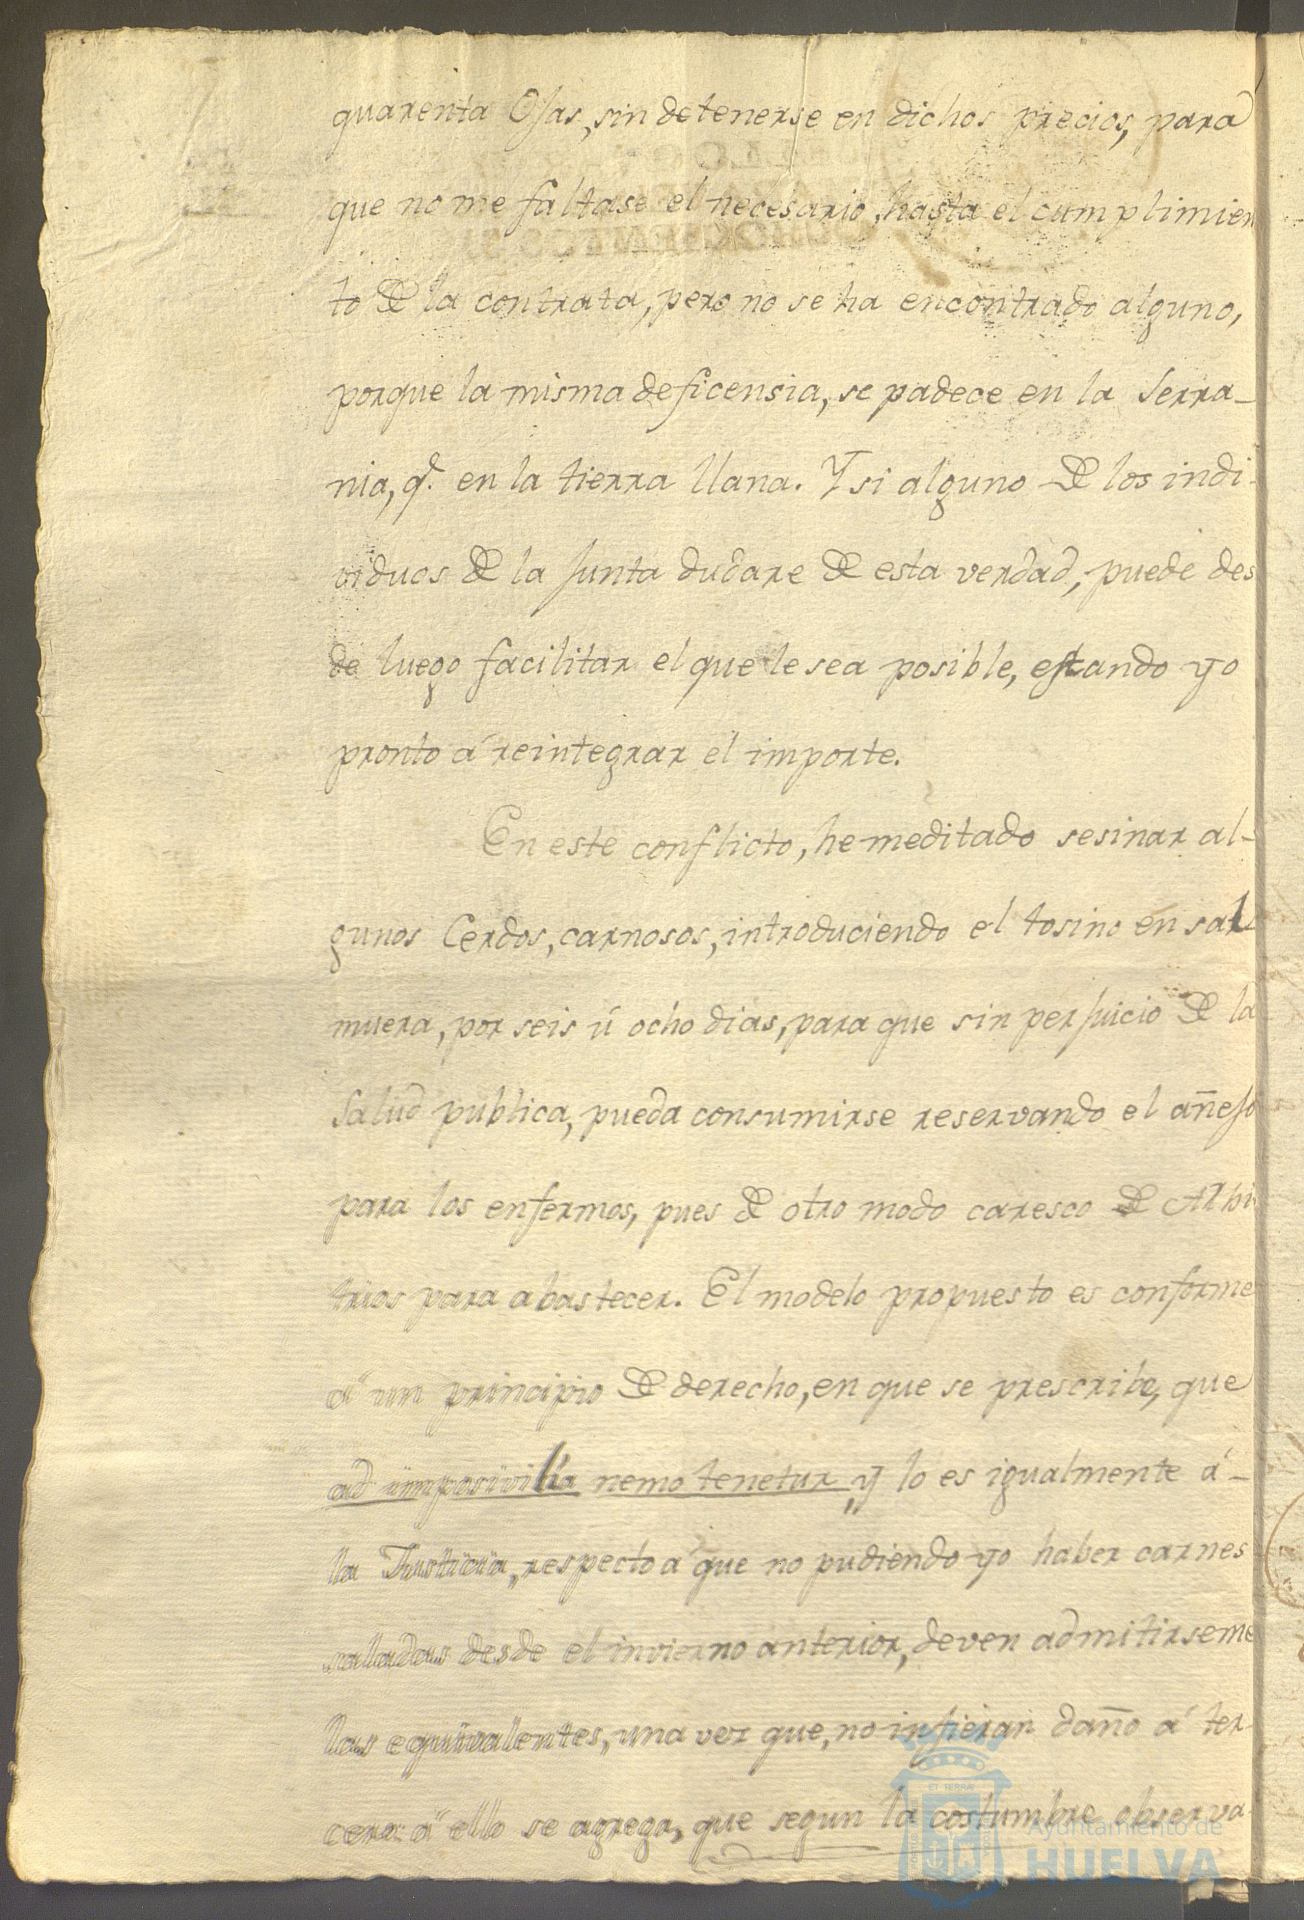 quarenta Ojas, sin detenerse en dichos precios, para
que no me faltase el necesario, hasta el cumplimien
to de la contrata, pero no se ha encontrado alguno,
porque la misma deficensia, se padece en la Serra-
nia, q.e en la tierra llana. Y si alguno de los indi-
viduos de la Junta dudare de esta verdad, puede des
de luego facilitar el que le sea posible, estando yo
pronto á reintegrar el importe.
En este conflicto, he meditado sesinar al-
gunos Cerdos, carnosos, introduciendo el tosino en sal
muera, por seis ú ocho dias, para que sin perjuicio de la
Salud publica, pueda consumirse reservando el añejo
para los enfermos, pues de otro modo caresco de Arbi-
trios para abastecer. El modelo propuesto es conforme
á un principio de derecho, en que se prescribe, que
ad imposivilia nemo tenetur y lo es igualmente á-
la Justicia, respecto á que no pudiendo yo haber carnes
saladas desde el invierno anterior, deven admitirseme
las equivalentes, una vez que, no infieran daño á ter-
cero: á ello se agrega, que segun la costumbre observa-
Ayuntamiento de
HUELVA